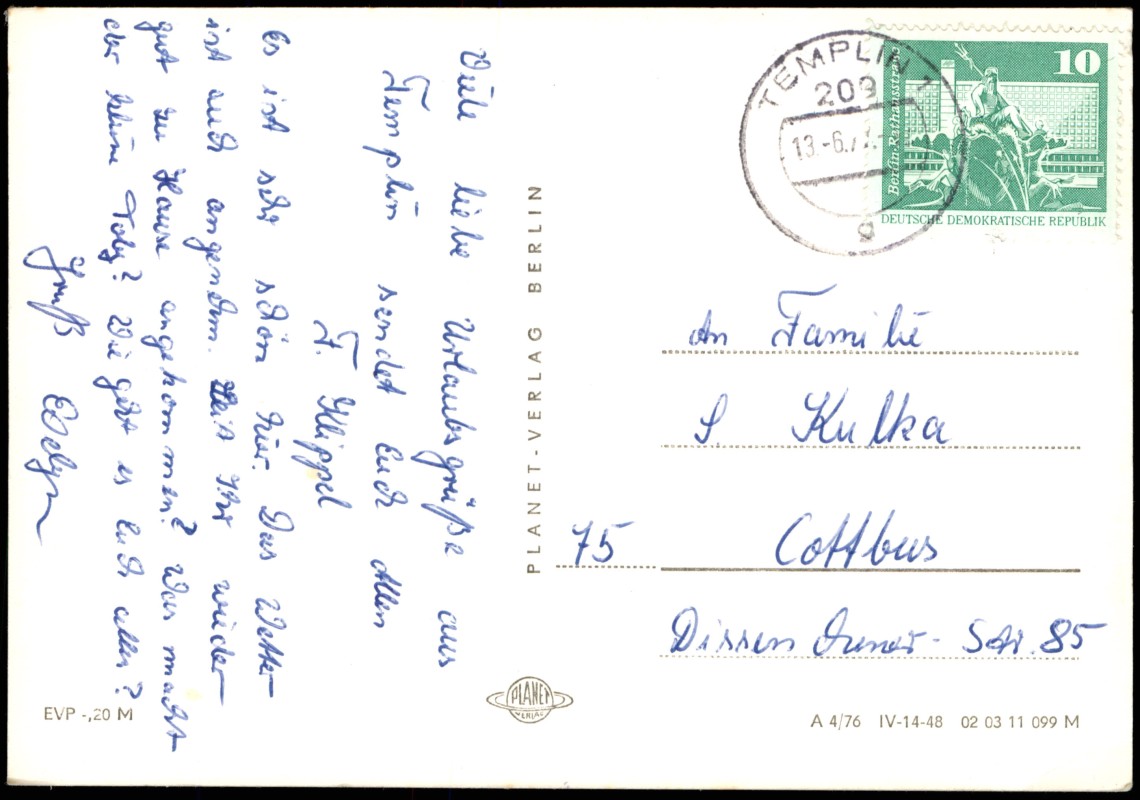 Viele liebe Urlaubsgrüße aus
Templin sendet Euch allen
F. Klippel
Es ist sehr schön hier. Das Wetter
ist auch angenehm. Seit Ihr wieder
gut zu Hause angekommen? Was macht
der kleine Toby? Wie geht es Euch allen?
Gruß Evelyn
PLANET-VERLAG BERLIN
TEMPLIN 1
209
13.-6.77.-
g
10
Berlin-Rathausstraße
DEUTSCHE DEMOKRATISCHE REPUBLIK
An Familie
S. Kulka
75 Cottbus
Dissenchener-Str. 85
EVP -,20 M
PLANET
VERLAG
A 4/76 IV-14-48 02 03 11 099 M